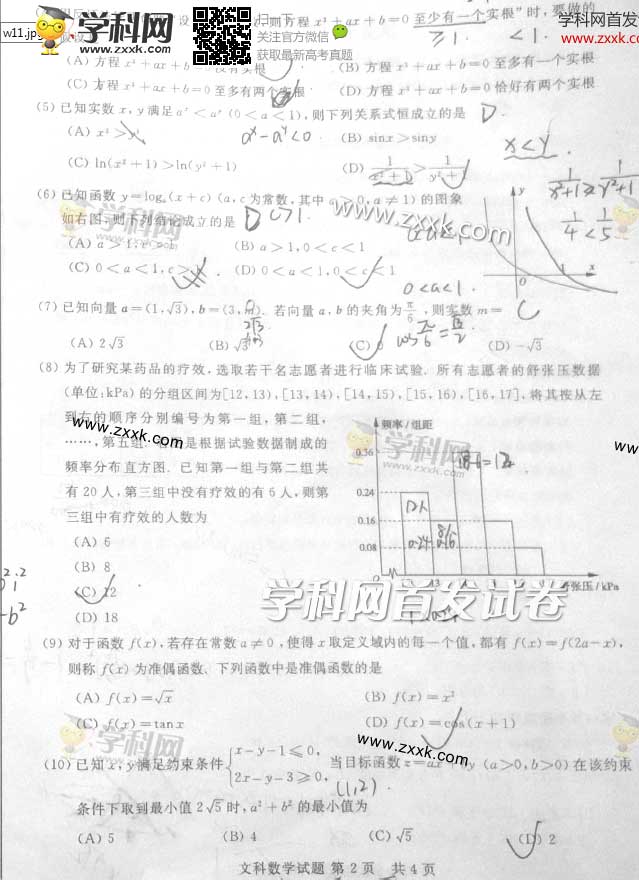 学科网
www.zxxk.com
扫一扫
关注官方微信
获取最新高考真题
学科网
www.zxxk.
w11.jp
则方程 x³+ax+b=0 至少有一个实根”时,要做的
≥1.
<1.
(A) 方程 x³+ax+b=0 没有实根
(B) 方程 x³+ax+b=0 至多有一个实根
(C) 方程 x³+ax+b=0 至多有两个实根
(D) 方程 x³+ax+b=0 恰好有两个实根
(5) 已知实数 x,y 满足 aˣ<aʸ (0<a<1),则下列关系式恒成立的是 D
(A) x³>y³
aˣ-aʸ<0
(B) sinx>siny
x<y
(C) ln(x²+1)>ln(y²+1)
(D) 1/(x²+1)>1/(y²+1)
1/(x²+1)≥1/(y²+1)
1/4<1/5
(6) 已知函数 y=logₐ(x+c) (a,c 为常数,其中 a>0,a≠1) 的图象
如右图,则下列结论成立的是 D c>1.
(A) a>1,c>
(B) a>1,0<c<1
(C) 0<a<1,c>
(D) 0<a<1,0<c<1
0<a<1.
y
O
1
x
学科网
www.zxxk.com
(7) 已知向量 a=(1,√3),b=(3,m). 若向量 a,b 的夹角为 π/6 ,则实数 m= C
(A) 2√3
(B) √3
(C) 0
cos π/6=√3/2
(D) -√3
(8) 为了研究某药品的疗效,选取若干名志愿者进行临床试验. 所有志愿者的舒张压数据
(单位:kPa) 的分组区间为[12,13),[13,14),[14,15),[15,16),[16,17],将其按从左
到右的顺序分别编号为第一组,第二组,
……,第五组. 右图是根据试验数据制成的
频率分布直方图. 已知第一组与第二组共
有 20 人,第三组中没有疗效的有 6 人,则第
三组中有疗效的人数为
(A) 6
(B) 8
(C) 12
(D) 18
频率 / 组距
0.36
0.24
0.16
0.08
0
18-6=12
12人
0.24
0.16
舒张压 / kPa
www.zxxk.com
学科网
zxxk.com
www.
学科网首发试卷
(9) 对于函数 f(x),若存在常数 a≠0 ,使得 x 取定义域内的每一个值,都有 f(x)=f(2a-x),
则称 f(x) 为准偶函数、下列函数中是准偶函数的是
(A) f(x)=√x
(B) f(x)=x²
(C) f(x)=tanx
(D) f(x)=cos(x+1)
学科网
www.zxxk.com
(10) 已知 x,y 满足约束条件 { x-y-1≤0,
2x-y-3≥0, 当目标函数 z=ax+by (a>0,b>0) 在该约束
条件下取到最小值 2√5 时,a²+b² 的最小值为
(A) 5
(B) 4
(C) √5
(D) 2
文科数学试题 第 2 页 共 4 页
www.zxxk.com